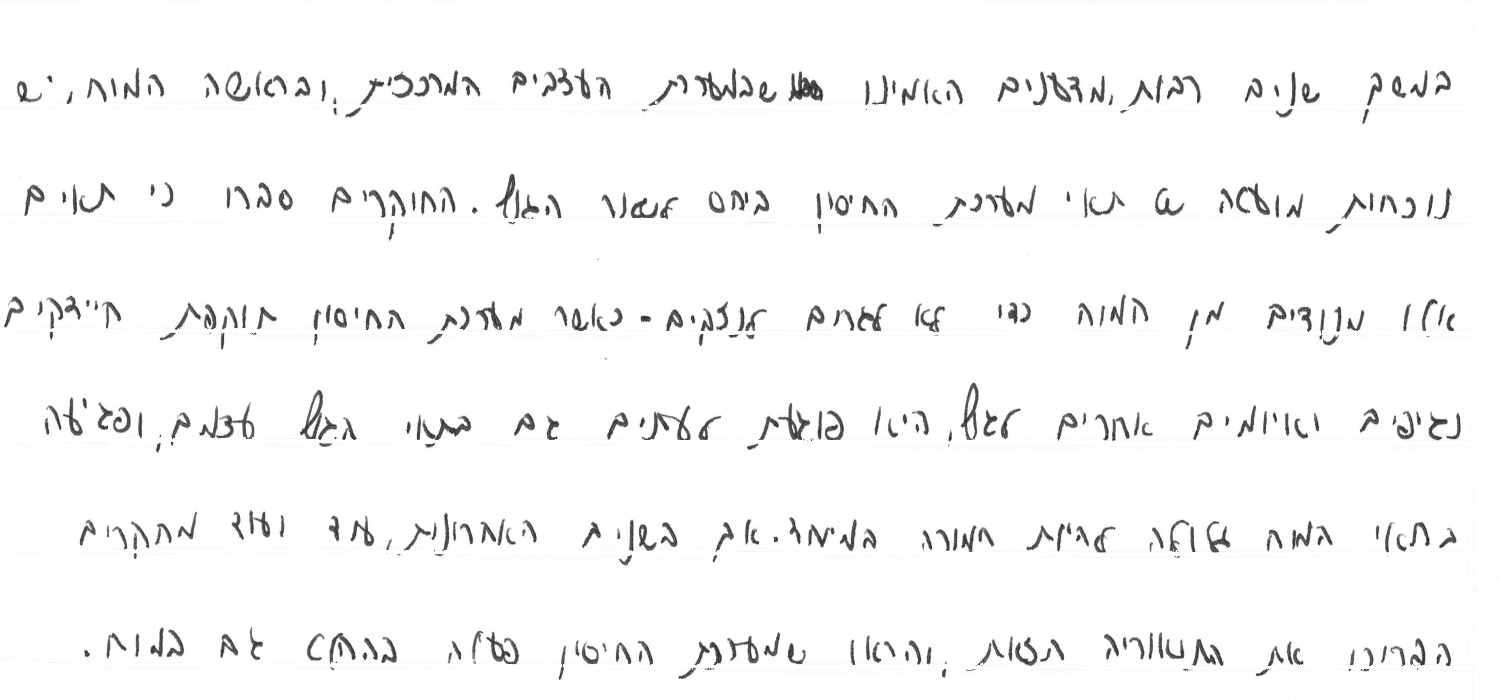 במשך שנים רבות, מדענים האמינו שבמערכת העצבים המרכזית, ובראשה המוח, יש
נוכחות מועטה של תאי מערכת החיסון ביחס לשאר הגוף. החוקרים סברו כי תאים
אילו מנודים מן המוח כדי לא לגרום לנזקים - כאשר מערכת החיסון תוקפת חיידקים
נגיפים ואיומים אחרים לגוף, היא פוגעת לעתים גם בתאי הגוף עצמם, ופגיעה
בתאי המוח עלולה להיות חמורה במיוחד. אך בשנים האחרונות, עוד ועוד מחקרים
הפריכו את התאוריה הזאת, והראו שמערכת החיסון פעילה בהחלט גם במוח.